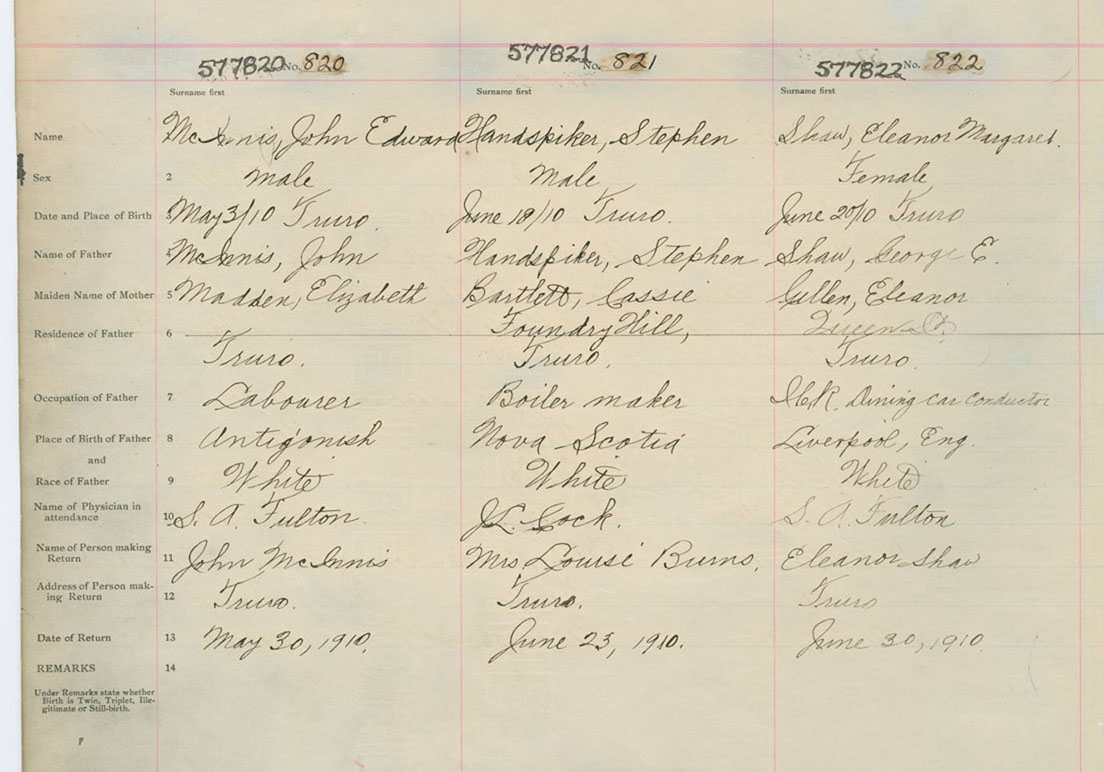 577820 No. 820 577821 No. 821 577822 No. 822
Surname first Surname first Surname first
Name McInnis, John Edward Handspiker, Stephen Shaw, Eleanor Margaret.
Sex 2 Male Male Female
Date and Place of Birth 3 May 3/10 Truro. June 18/10 Truro. June 20/10 Truro
Name of Father 4 McInnis, John Handspiker, Stephen Shaw, George E.
Maiden Name of Mother 5 Madden, Elizabeth Bartlett, Cassie Cullen, Eleanor
Foundry Hill, Queen St.
Residence of Father 6
Truro. Truro. Truro.
Occupation of Father 7 Labourer Boiler maker I.C.R. Dining car conductor
Place of Birth of Father 8 Antigonish Nova Scotia Liverpool, Eng.
and
Race of Father 9 White White White
Name of Physician in
attendance 10 S. A. Fulton. J.L. Cock. S. A. Fulton
Name of Person making
Return 11 John McInnis Mrs Louise Burns, Eleanor Shaw
Address of Person mak-
ing Return 12 Truro. Truro. Truro
Date of Return 13 May 30, 1910. June 23, 1910. June 30, 1910.
REMARKS 14
Under Remarks state whether
Birth is Twin, Triplet, Ille-
gitimate or Still-birth.